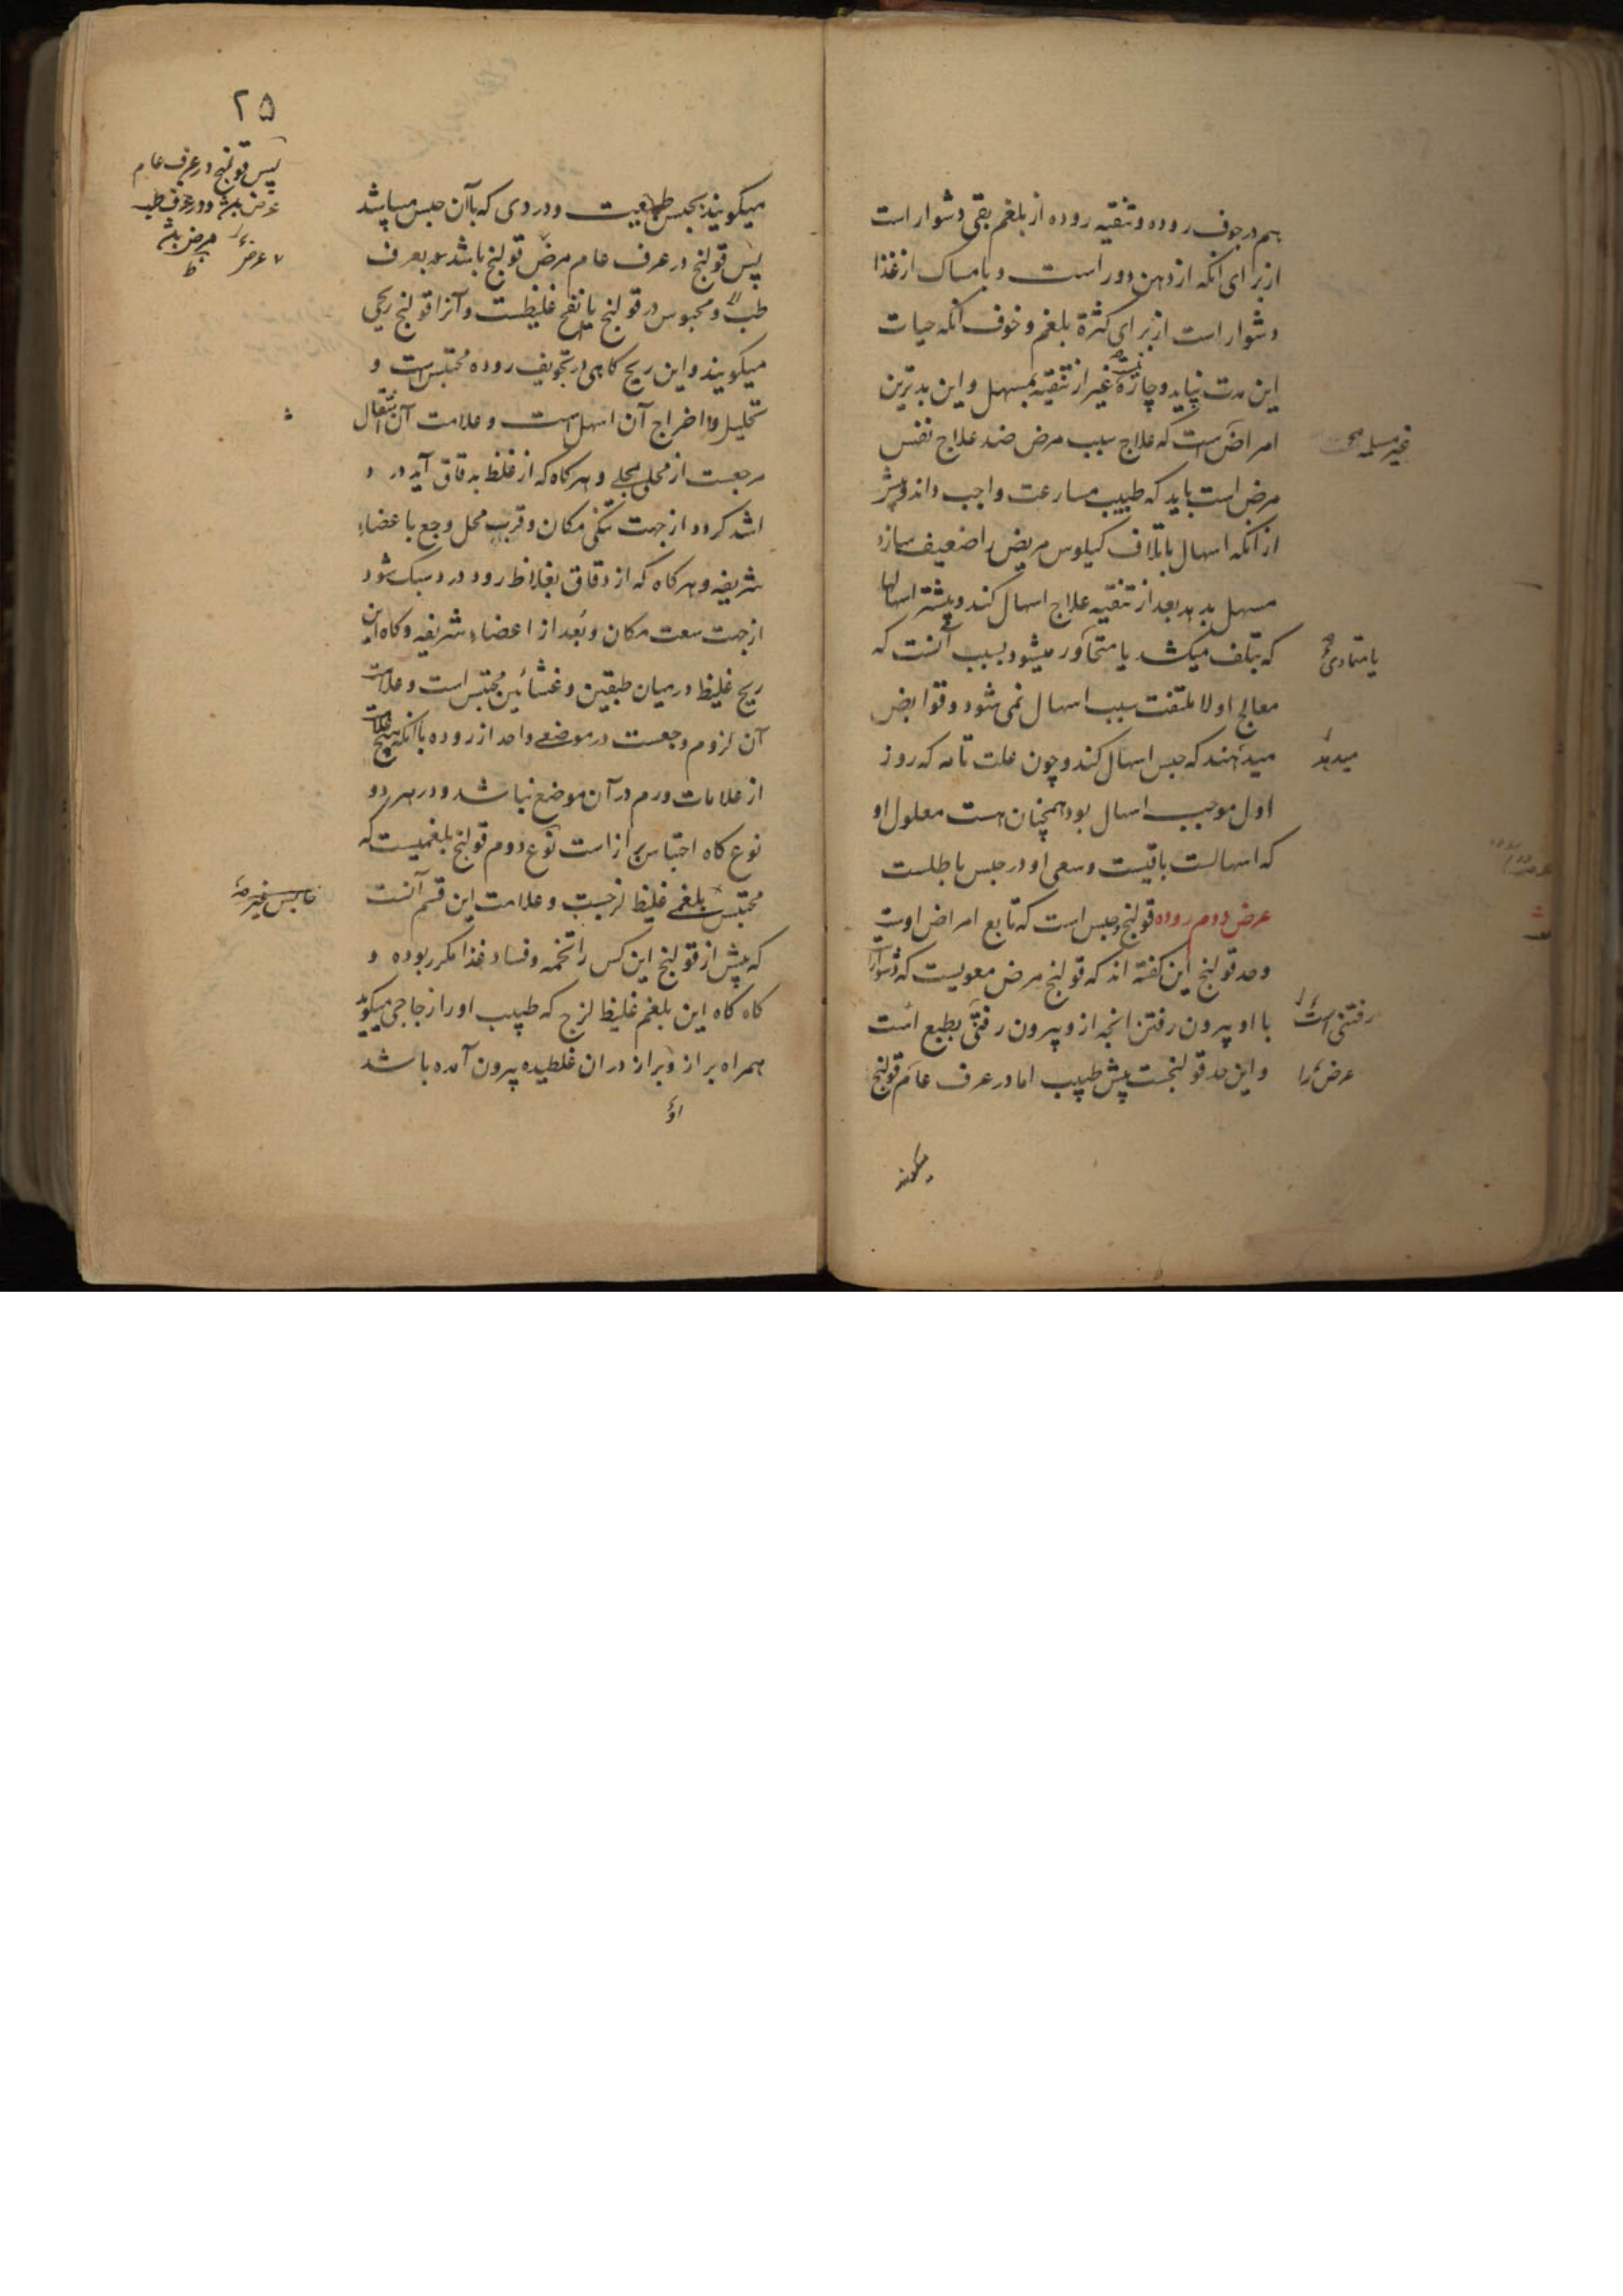 هم در جوف روده و تنقیه روده از بلغم بقی دشوار است
از برای انکه از دهن دور است و بامساک از غذا
دشوار است از برای کثرة بلغم و خوف انکه حیات
این مدت نپاید و چارهٔ نیست غیر از تنقیه بمسهل و این بدترین
امراض است که علاج سبب مرض ضد علاج نفس
مرض است باید که طبیب مسارعت واجب داند و پیش
از انکه اسهال باتلاف کیلوس مریض را ضعیف سازد
مسهل بدهد بعد از تنقیه علاج اسهال کند و بیشتر اسهالها
که بتلف میکشد یا متجاور میشود بسبب آنست که
یا متمادی
معالج اولا ملتفت سبب اسهال نمی شود و قوابض
میدهند که حبس اسهال کند و چون علت تامه که روز
میدهد
اول موجب اسهال بود همچنان هست معلول او
که اسهالست باقیست و سعی او در حبس باطلست
عرض دوم روده قولنج و حبس است که تابع امراض اوست
و حد قولنج این کفته اند که قولنج مرض معویست که دشوار است
با او بیرون رفتن انچه ازو بیرون رفتنی بطبع است
رفتنی است
و این حد قولنجست پیش طبیب اما در عرف عام قولنج
عرض را
میکویند
۲۵
میکویند بحبس طبیعت و دردی که باآن حبس میباشد
پس قولنج در عرف عام مرض قولنج باشد نه بعرف
پس قولنج در عرف عام
عرض باشد و در عرف طب
مرض باشد
طب و محبوس در قولنج یا نفخ غلیظست و آنرا قولنج ریحی
میکویند و این ریح کاهی در تجویف روده محتبس است و
تحلیل و اخراج آن اسهل است و علامت آن انتقال
وجعست از محلی بمحلی و هر کاه که از غلظ بدقاق آید درد
اشد کردد از جهت تنکی مکان و قرب محل وجع باعضاء
شریفه و هر کاه که از دقاق بغلاظ رود درد سبک شود
از جهت سعت مکان و بعد از اعضاء شریفه و کاه این
ریح غلیظ در میان طبقین و غشائین محتبس است و علامت
آن لزوم وجعست در موضعی واحد از روده باانکه هیچ علامت
از علامات ورم در آن موضع نباشد و در هر دو
نوع کاه احتباس براز است نوع دوم قولنج بلغمیست که
محتبس بلغمی غلیظ لزجست و علامت این قسم آنست
که پیش از قولنج این کس را تخمه و فساد غذا مکرر بوده و
کاه کاه این بلغم غلیظ لزج که طبیب او را زجاجی میکوید
همراه براز و براز در ان غلطیده بیرون آمده باشد
او